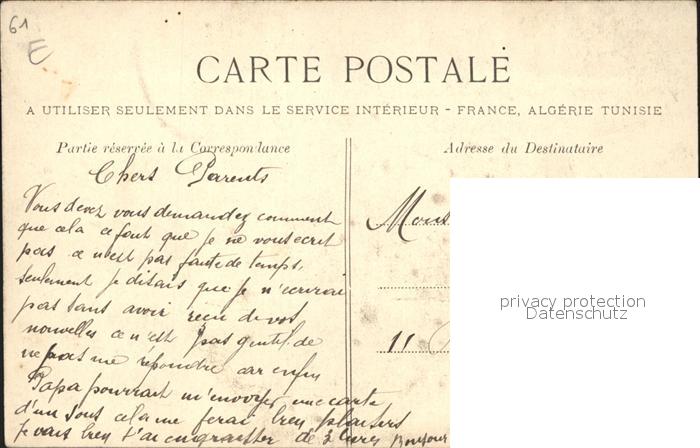 61
E
CARTE POSTALE
A UTILISER SEULEMENT DANS LE SERVICE INTÉRIEUR - FRANCE, ALGÉRIE TUNISIE
Partie réservée à la Correspondance
Adresse du Destinataire
Chers Parents
Vous devez vous demandez comment
que cela ce fait que je ne vous ecrit
pas ce n'est pas faute de temps,
seulement je disais que je n'ecrirai
pas sans avoir recu de vos
nouvelles ce n'est pas gentil de
ne pas me répondre car enfin
Papa pourrait m'envoyer une carte
d'un sous cela me ferai bien plaisirs
Je vais bien j'ai engraisser de 3 livres Bonjour
Mons
11
privacy protection
Datenschutz